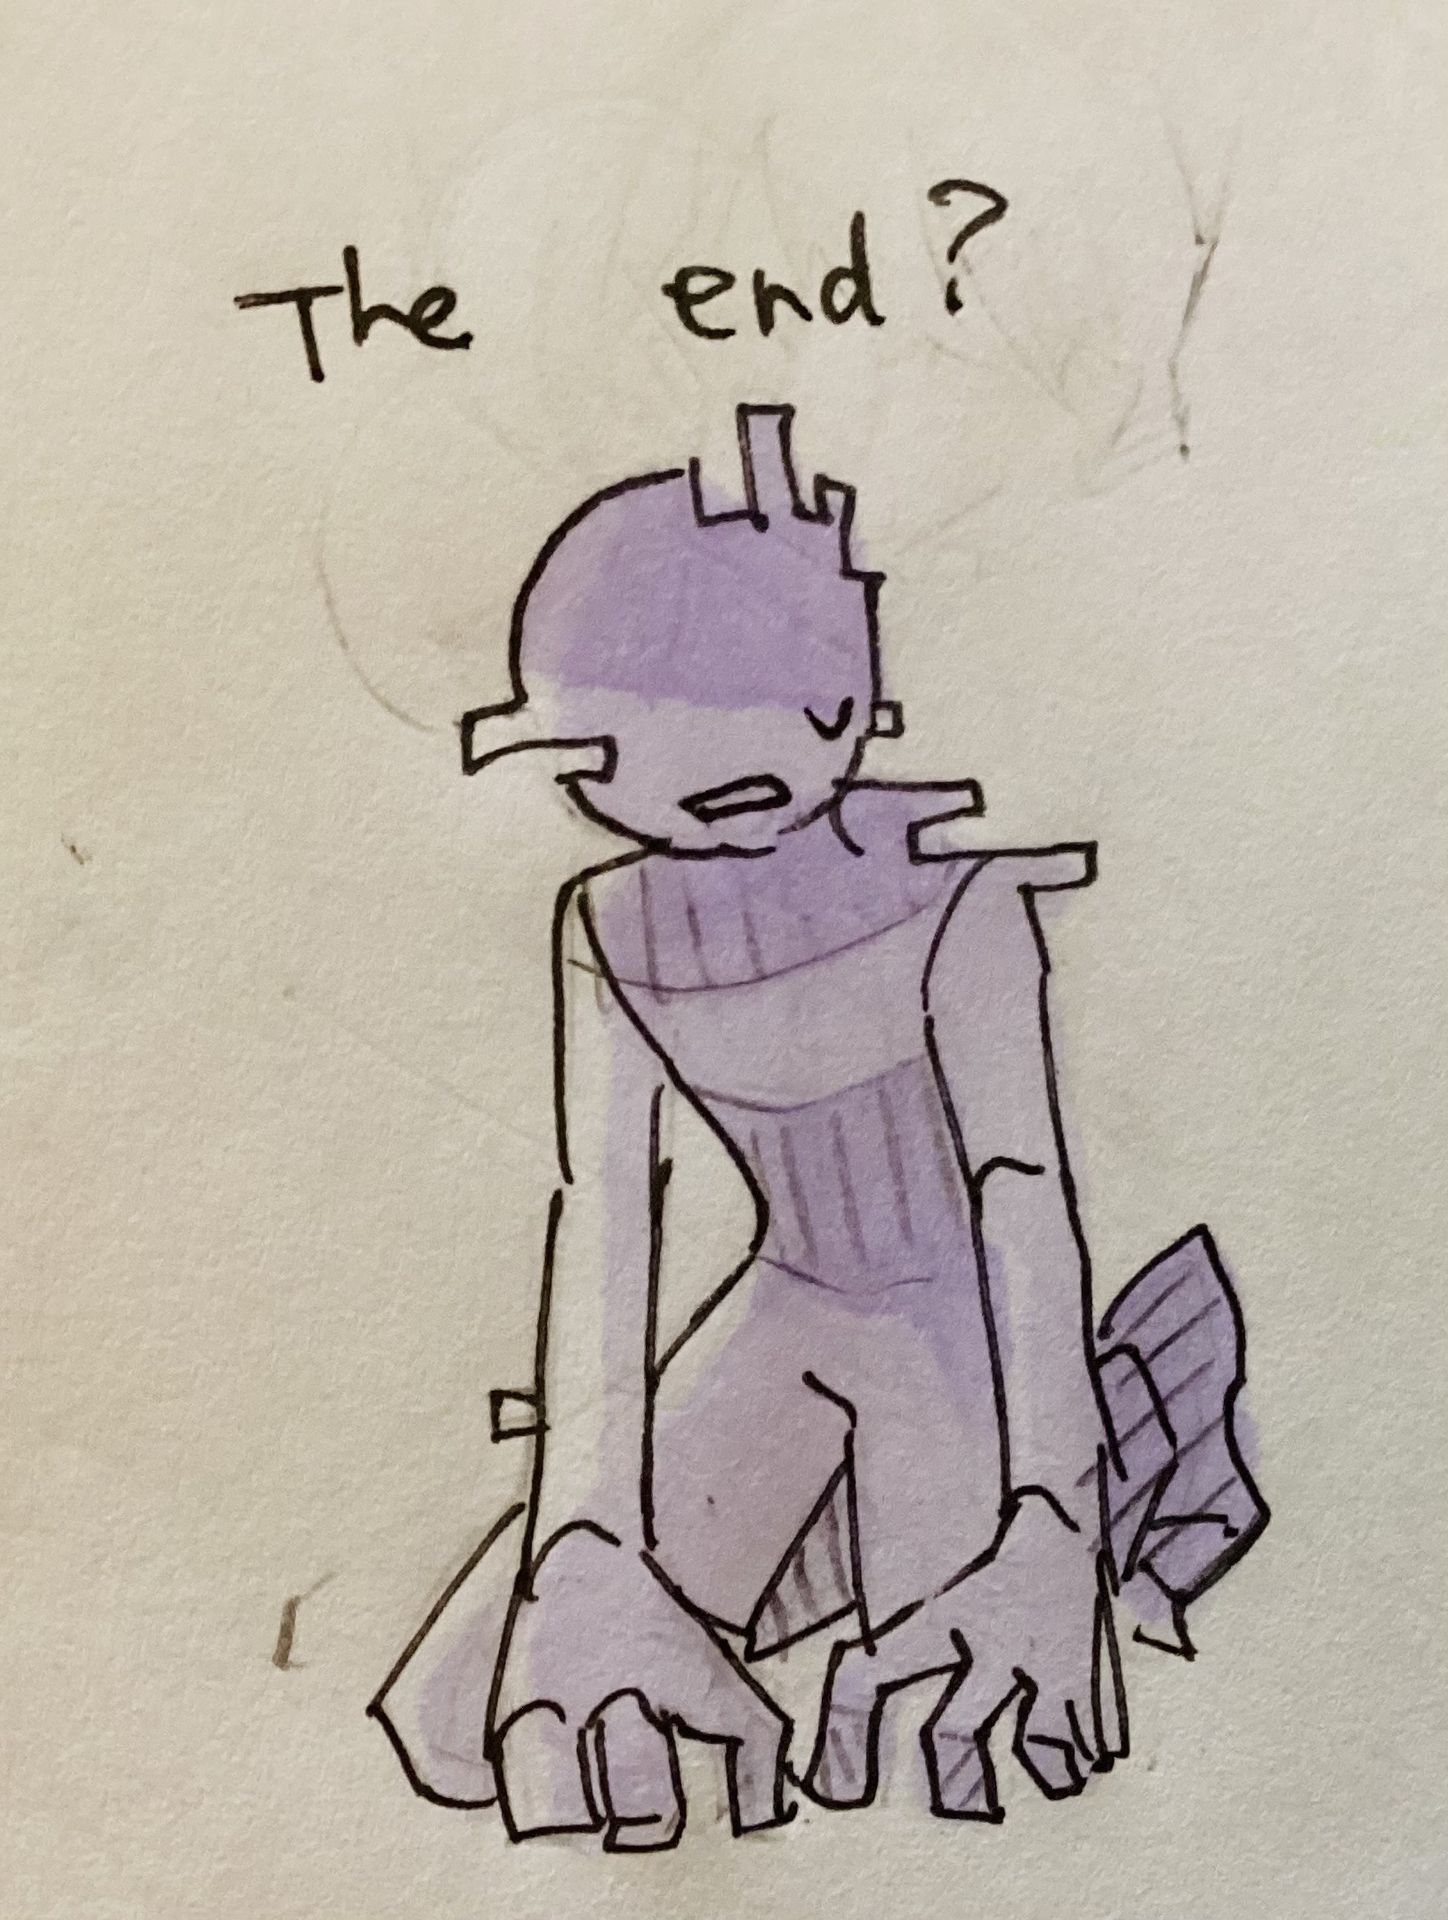 The end?